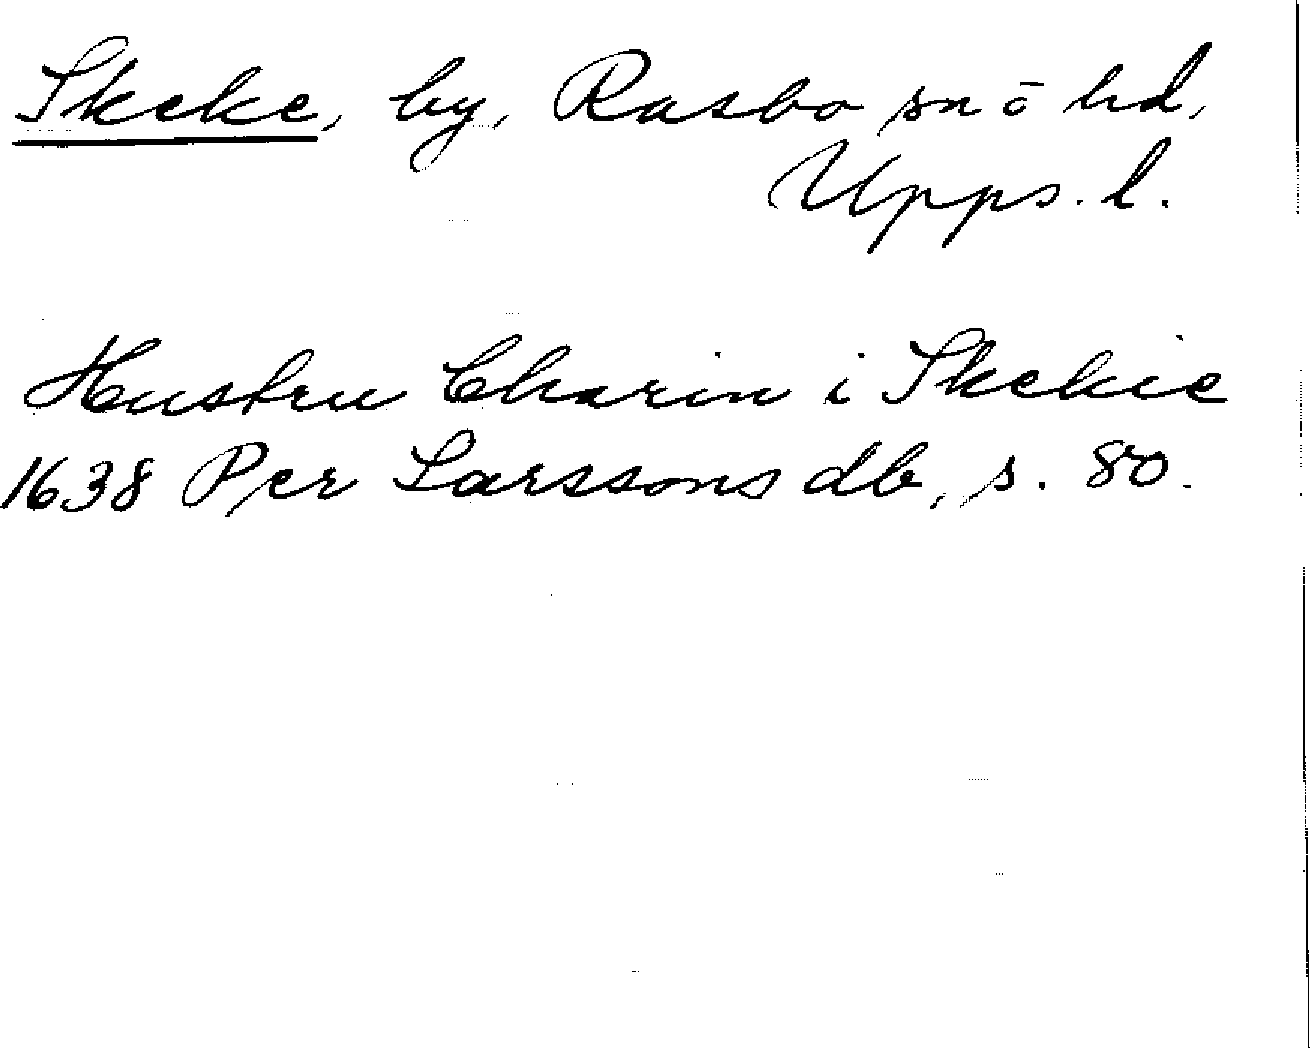 Skeke, by, Rasbo sn o hd,
Upps. l.
Hustru Charin i Skekie
1638 Per Larssons db, s. 80.